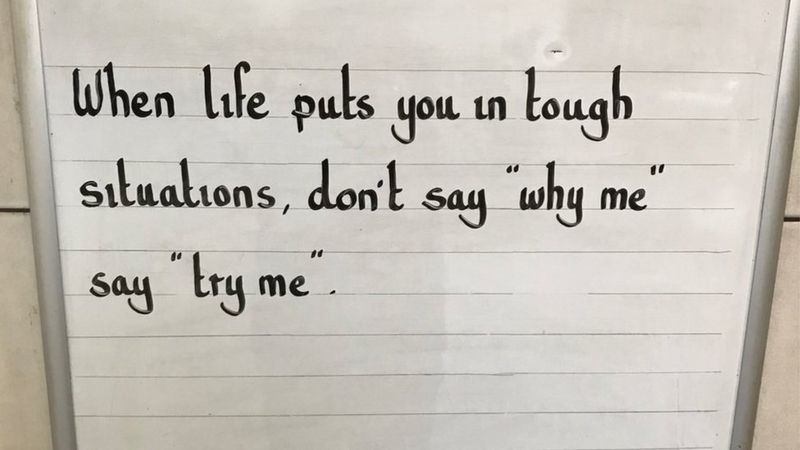 When life puts you in tough
situations, don't say "why me"
say "try me".